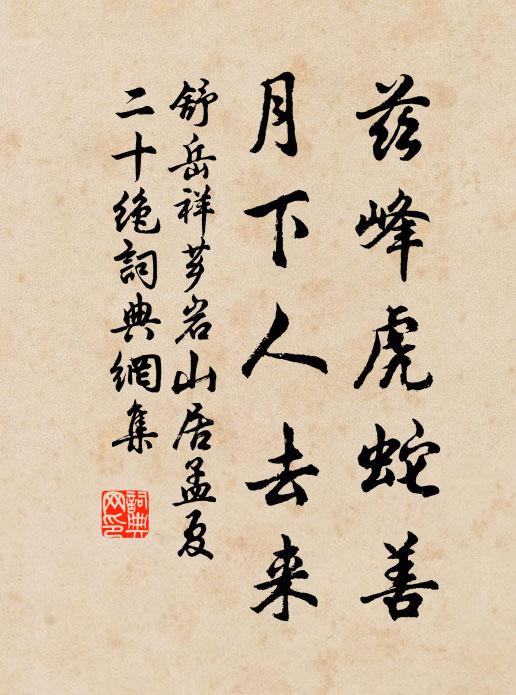 兹峰虎蛇善
月下人去来
舒岳祥芗岩山居孟夏
二十绝词典網集
詞典
网印